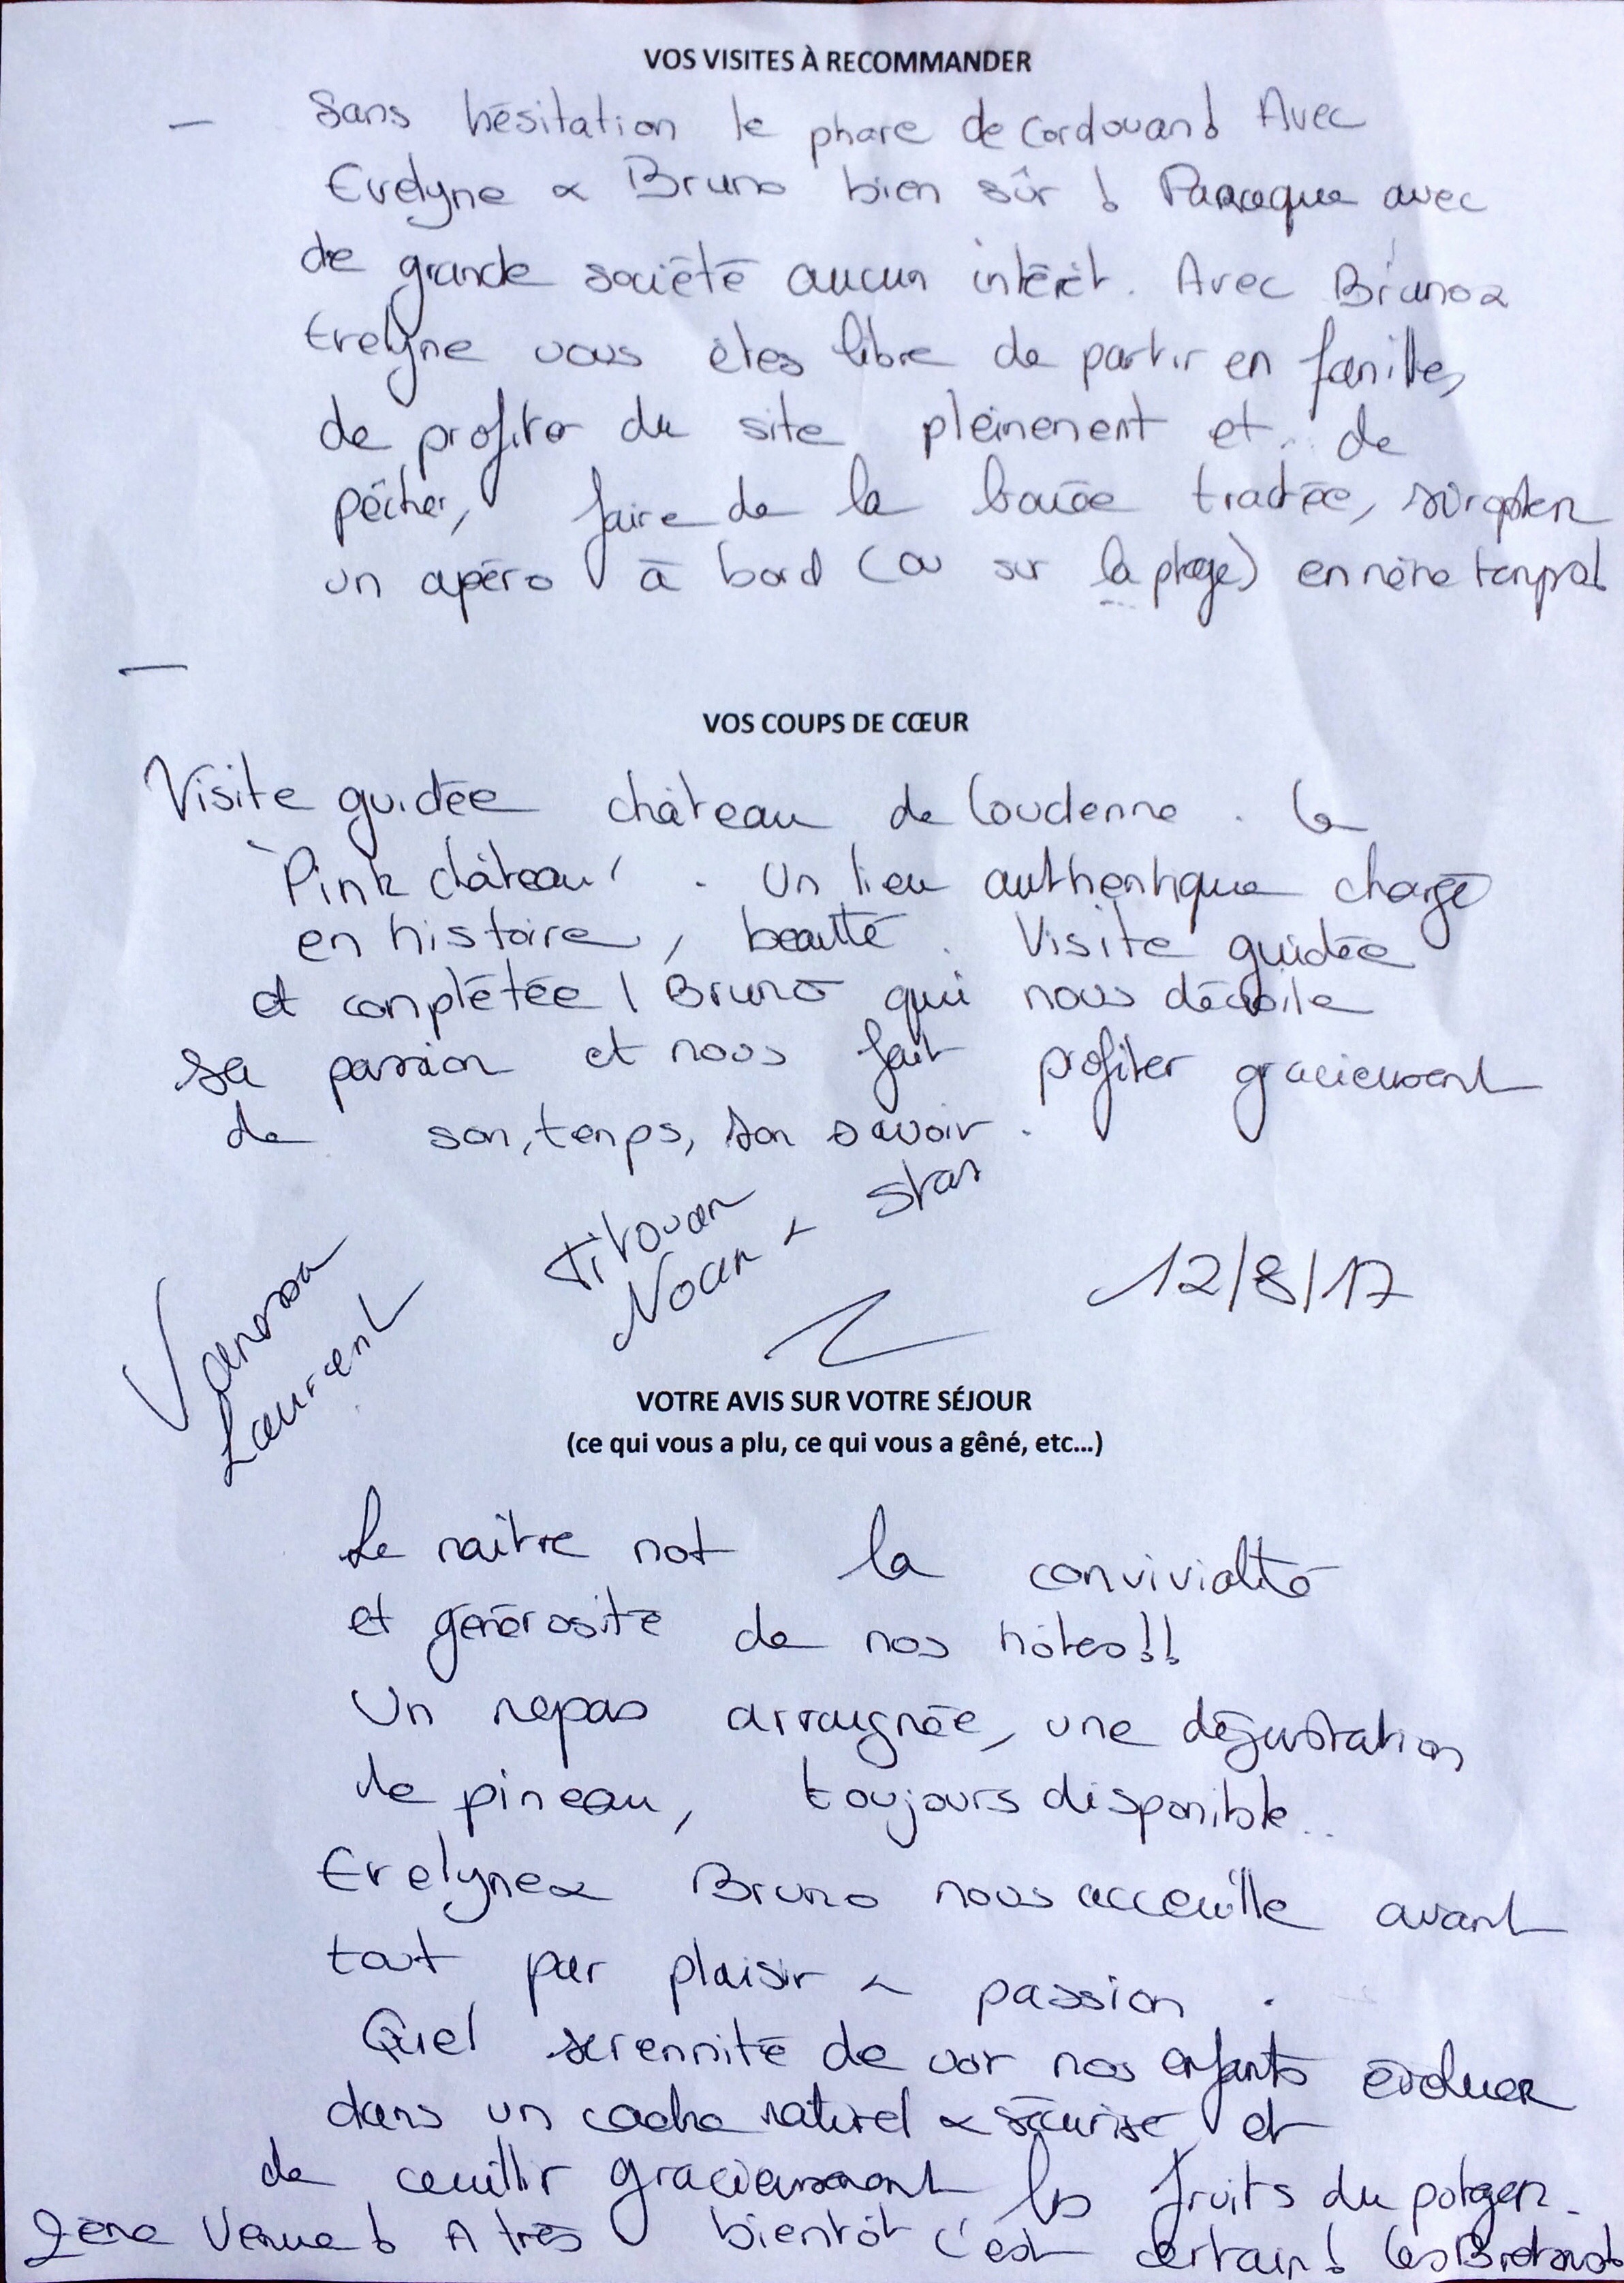 VOS VISITES À RECOMMANDER
— Sans hésitation le phare de Cordouan! Avec
Evelyne & Bruno bien sûr ! Parceque avec
de grande société aucun intérêt. Avec Bruno &
Evelyne vous êtes libre de partir en famille,
de profiter du site pleinement et de
pêcher, faire de la bouée tractée, siroter
un apéro à bord (ou sur la plage) en même temps!
—
VOS COUPS DE CŒUR
Visite guidée château de Loudenne . Le
"Pink château" . Un lieu authentique chargé
en histoire, beauté . Visite guidée
et complétée / Bruno qui nous dévoile
sa passion et nous fait profiter gracieusement
de son, temps, son savoir .
Vanessa
Laurent
Titouan
Noan & Stan
12/8/17
VOTRE AVIS SUR VOTRE SÉJOUR
(ce qui vous a plu, ce qui vous a gêné, etc…)
Le maître mot la convivialité
et générosité de nos hôtes!!
Un repas arraignée, une dégustation
de pineau, toujours disponible..
Evelyne & Bruno nous acceuille avant
tout par plaisir & passion .
Quel serennité de voir nos enfants évoluer
dans un cadre naturel & sécurisé et
de ceuillir gracieusement les fruits du potager.
2ème Venue! A très bientôt c'est certain! Les Bretons!